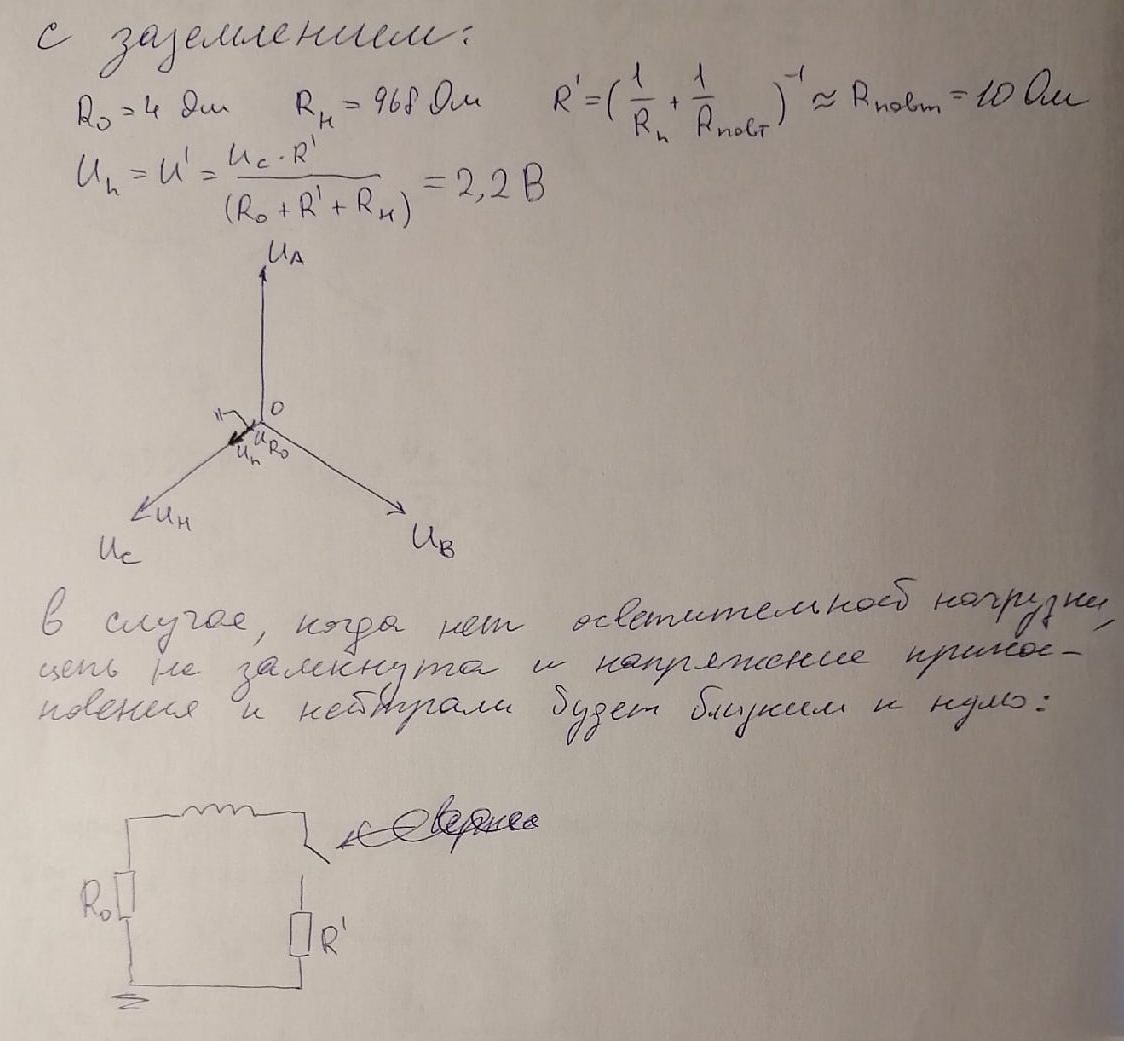 с заземлением:
R₀ = 4 Ом Rн = 968 Ом R' = (1/Rh + 1/Rповт)⁻¹ ≈ Rповт = 10 Ом
Uh = U' = Uc · R' / (R₀ + R' + Rн) = 2,2 В
UA
0
UR₀
Uh
Uн
UC
UB
в случае, когда нет осветительной нагрузки,
цепь не замкнута и напряжение прикос-
новения и нейтрали будет близким к нулю:
R₀
R'